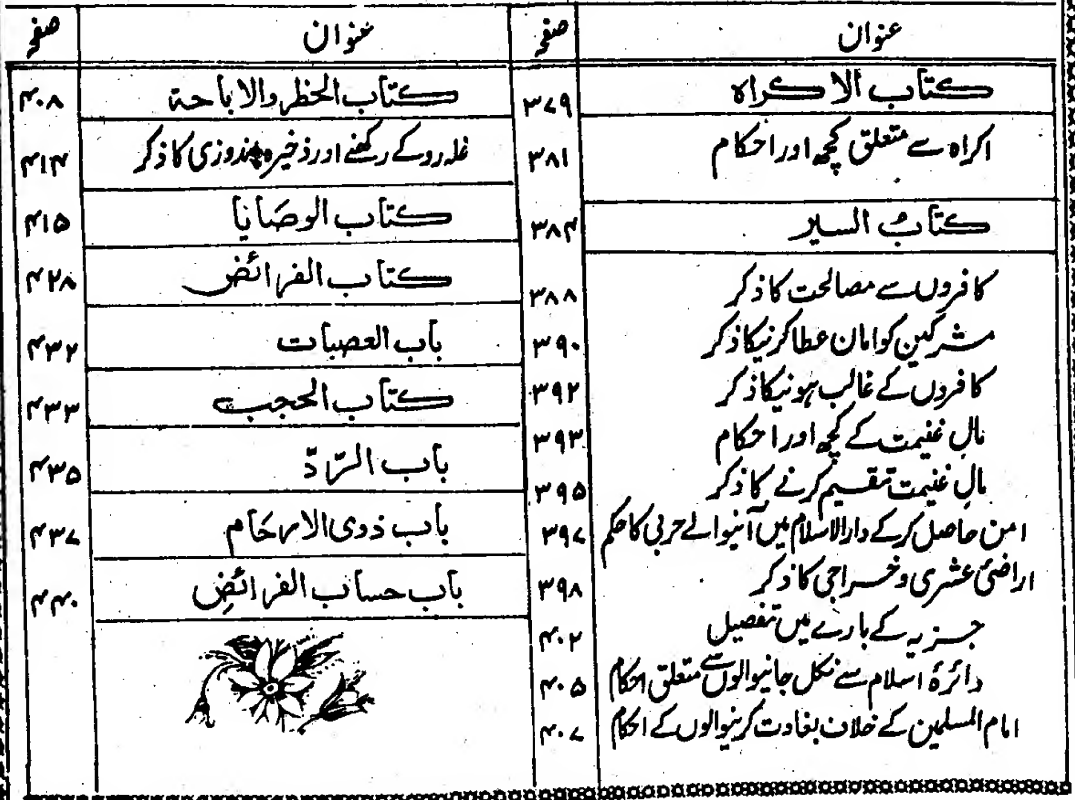 عنوان صفحہ
کتاب الاکراہ ۳۷۹
اکراہ سے متعلق کچھ اور احکام ۳۸۱
کتاب السیر ۳۸۴
کافروں سے مصالحت کا ذکر ۳۸۸
مشرکین کو امان عطا کرنیکا ذکر ۳۹۰
کافروں کے غالب ہونیکا ذکر ۳۹۲
مالِ غنیمت کے کچھ اور احکام ۳۹۳
مالِ غنیمت تقسیم کرنے کا ذکر ۳۹۵
امن حاصل کرکے دارالاسلام میں آنیوالے حربی کا حکم ۳۹۷
اراضئ عشری و خراجی کا ذکر ۳۹۸
جزیہ کے بارے میں تفصیل ۴۰۲
دائرۂ اسلام سے نکل جانیوالوں سے متعلق احکام ۴۰۵
امام المسلمین کے خلاف بغاوت کرنیوالوں کے احکام ۴۰۷
عنوان صفحہ
کتاب الحظر والاباحة ۴۰۸
غلہ روکے رکھنے اور ذخیرہ اندوزی کا ذکر ۴۱۴
کتاب الوصَایا ۴۱۵
کتاب الفرائض ۴۲۸
باب العصبات ۴۳۲
کتاب الحجب ۴۳۳
باب الرّدّ ۴۳۵
باب ذوی الارحَام ۴۳۷
باب حساب الفرائضِ ۴۴۰